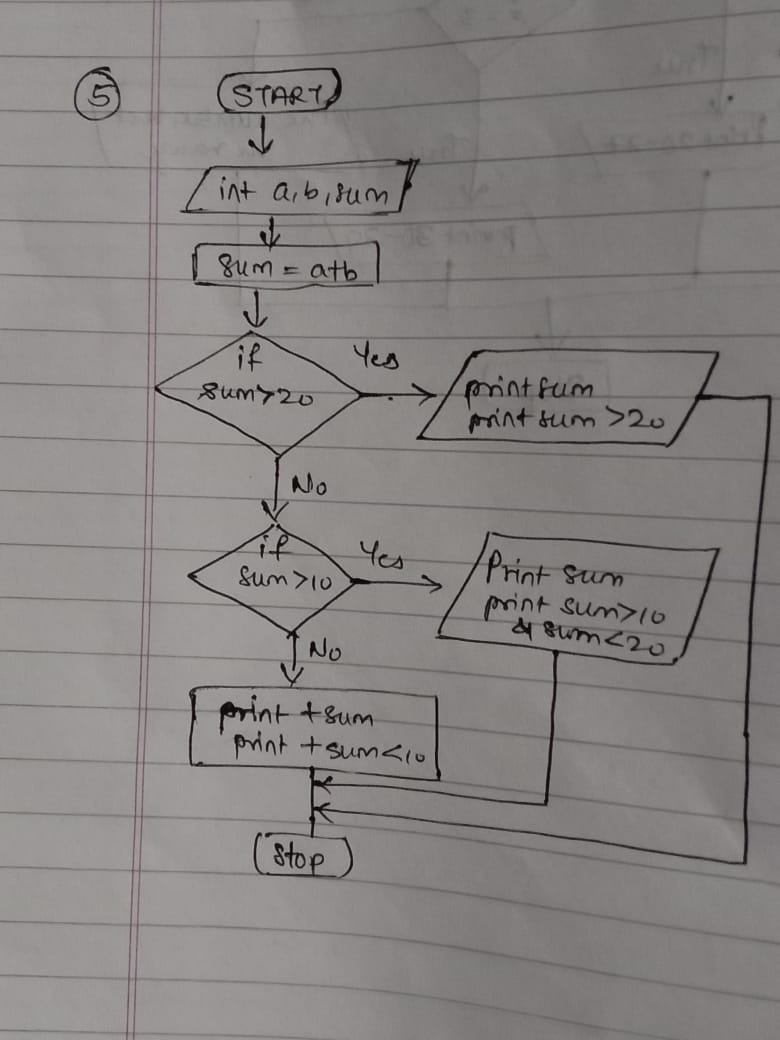 5
START
int a,b,sum
sum = a+b
if
sum>20
Yes
print sum
print sum >20
No
if
sum>10
Yes
Print sum
print sum>10
& sum<20
No
print + sum
print + sum<10
Stop